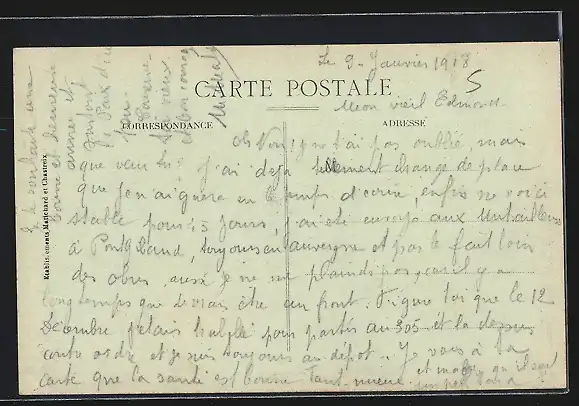 Le 9 Janvier 1918
5
CARTE POSTALE
Mon vieil Edmond.
CORRESPONDANCE
ADRESSE
Oh Non! je t'ai pas oublié, mais
que veux tu j'ai déjà tellement changé de place
que je n'ai guère eu le temps d'écrire, enfin me voici
stable pour 15 jours, j'ai été envoyé aux
à Pont du Baud, toujours en auvergne et pas le fait loin
des obus, aussi je ne me plaindis pas, car il y a
longtemps que devrais être au front. Figure toi que le 12
Décembre j'étais habillé pour partir au 305 et la dessus
contre ordre et je suis toujours au dépot.. Je vois à ta
carte que la santé est bonne Tant mieux. et malgré qu'il soit
un peu tard
je te souhaite une
bonne et heureuse
année et
surtout
la Paix
Ton
vieux
Etablissements Malichard et Chastroux